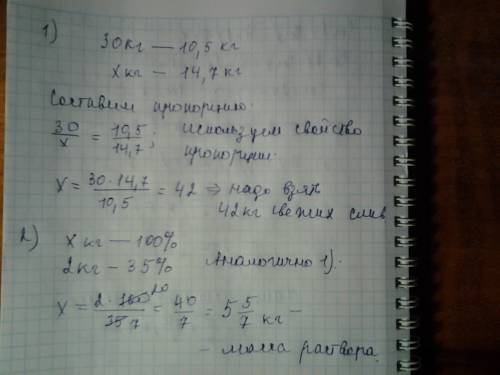 1)
30кг — 10,5 кг
x кг — 14,7 кг
Составим пропорцию:
30/x = 10,5/14,7; используем свойство
пропорции:
x = 30·14,7/10,5 = 42 ⇒ надо взять
42кг свежих слив.
2) x кг — 100%
2кг — 35% Аналогично 1).
x = 2·100 20/35 7 = 40/7 = 5 5/7 кг —
— масса раствора.